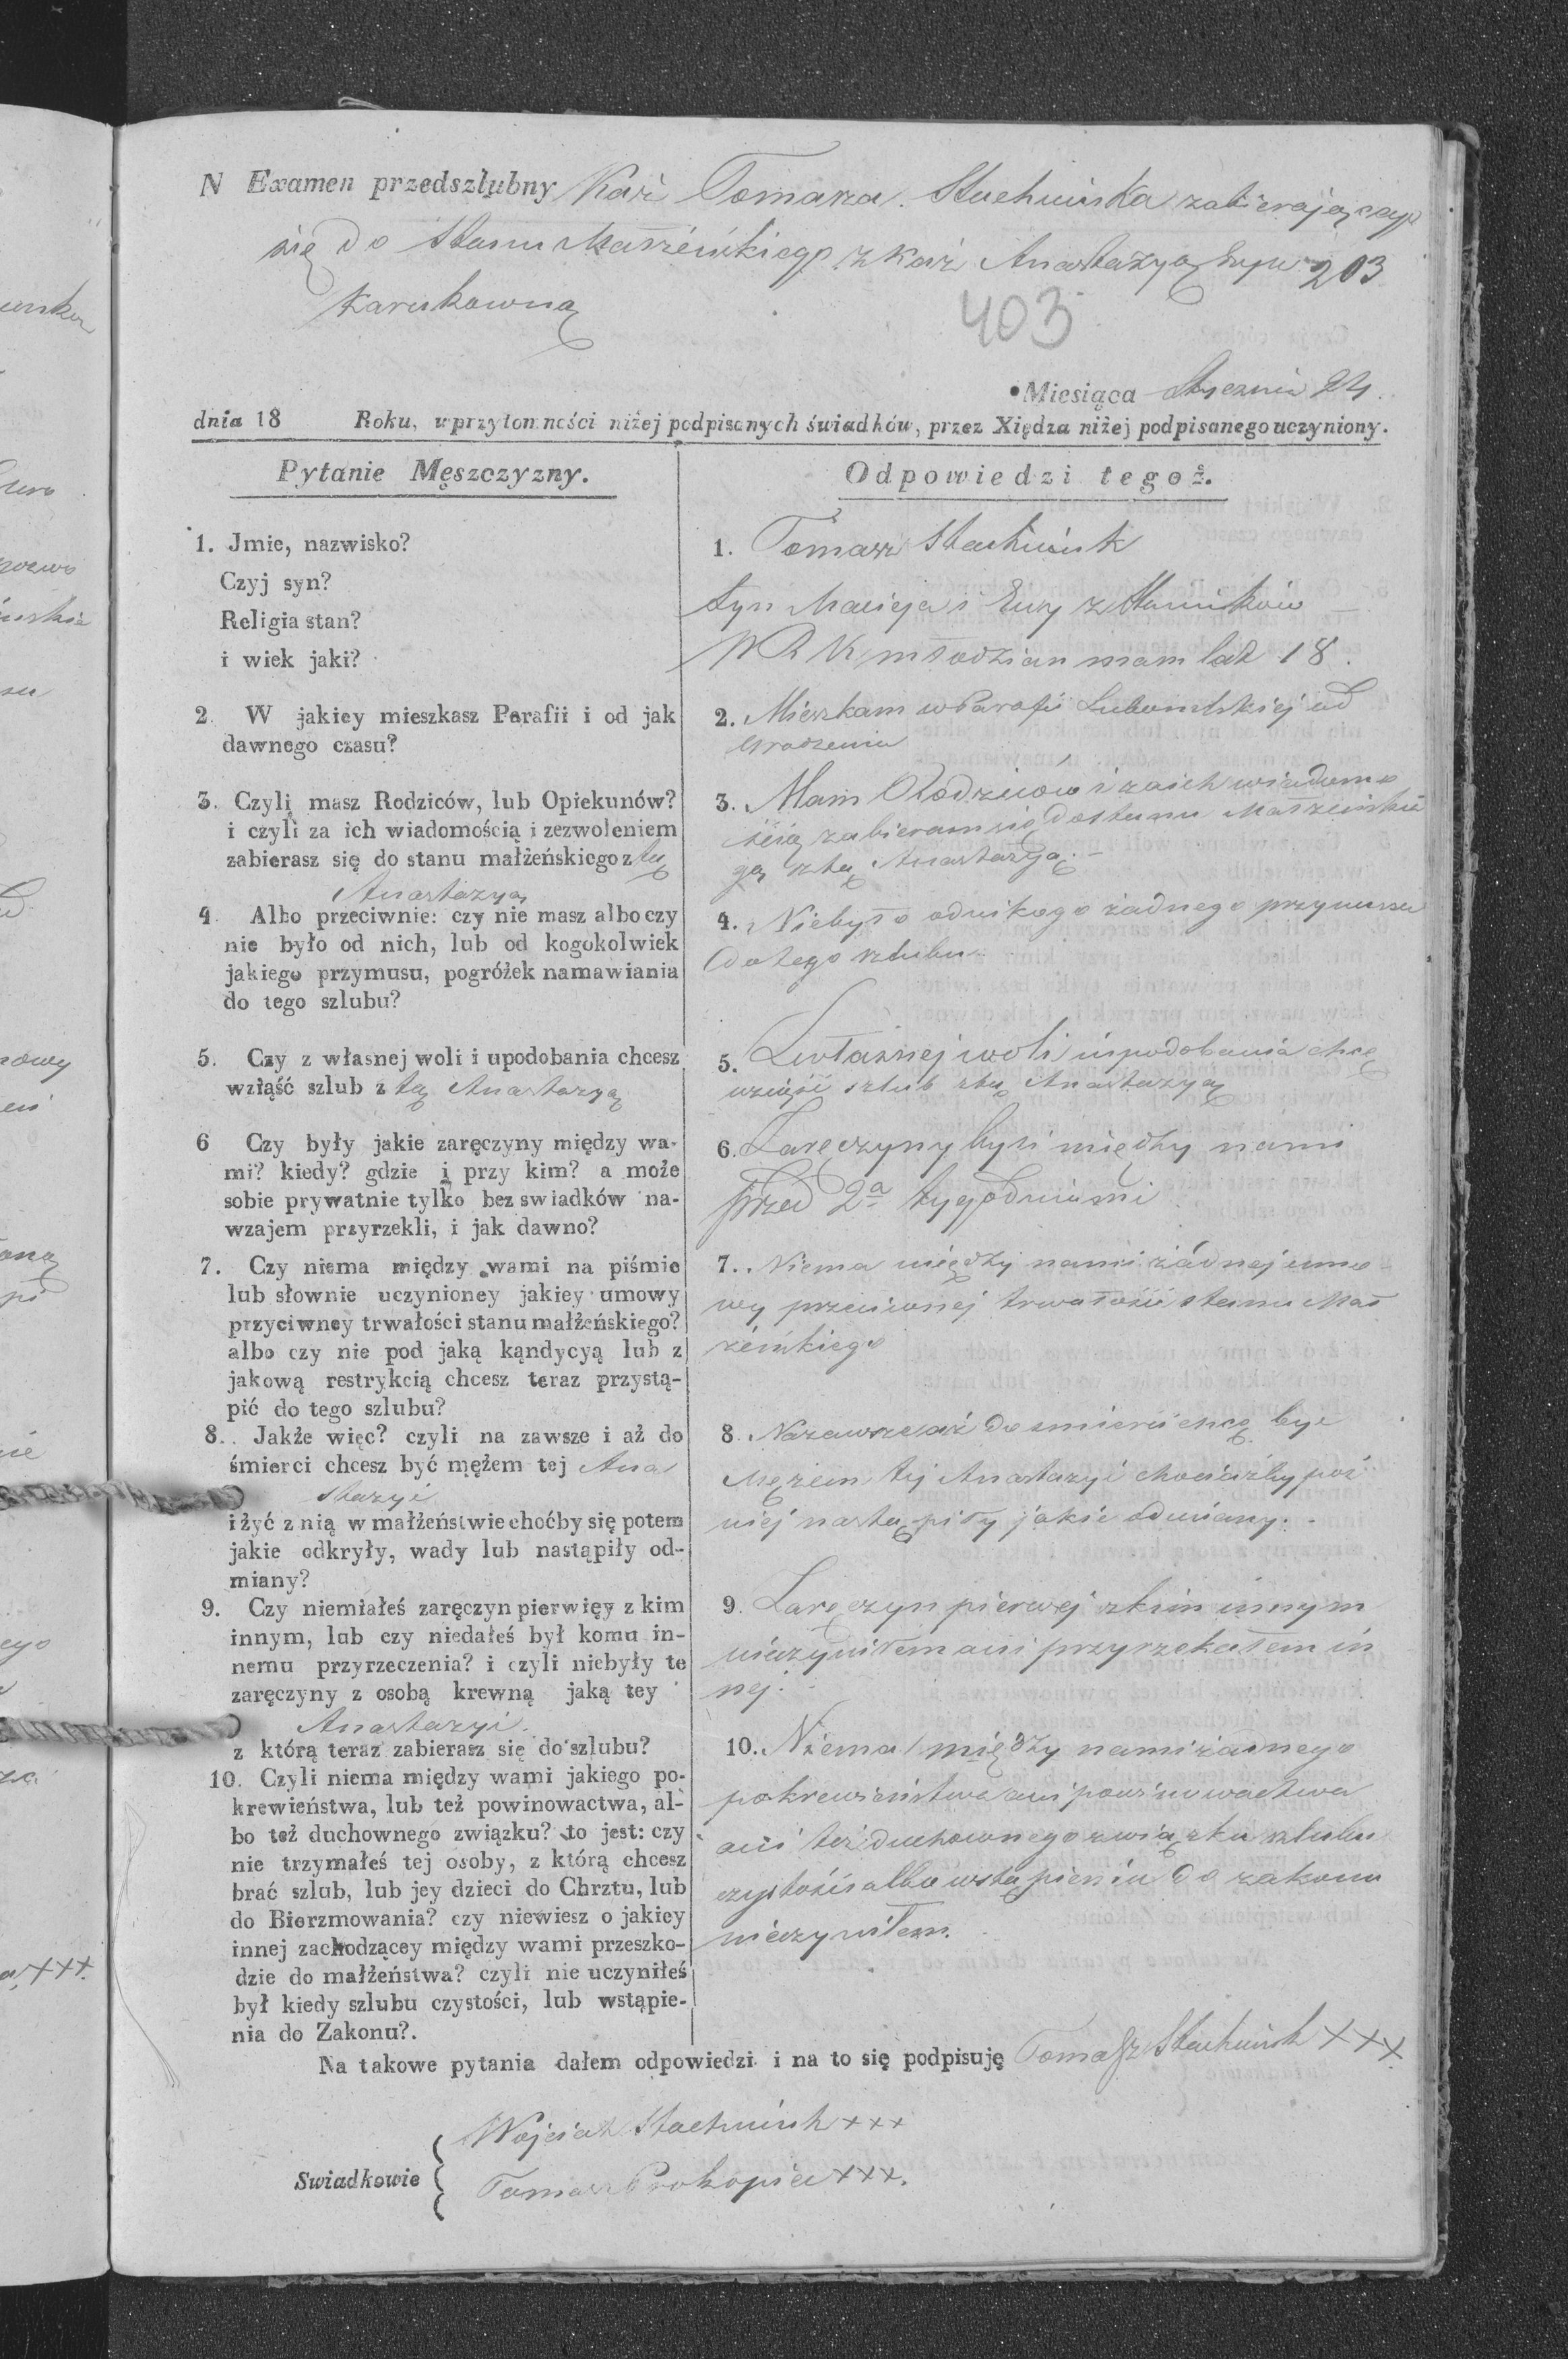 N Examen przedszlubny Kaw Tomasza Stachniuka zabierającego
się do Stanu Małżeńskiego z Kaw Anastazyą
203
Karukowną
403
Miesiąca Stycznia 24.
dnia 18 Roku, w przytomności niżej podpisanych świadków, przez Xiędza niżej podpisanego uczyniony.
Pytanie Męszczyzny.
Odpowiedzi tegoż.
1. Jmie, nazwisko?
Czyj syn?
Religia stan?
i wiek jaki?
1. Tomasz Stachniuk
Syn Macieja i Ewy z
W R K młodzian mam lat 18.
2. W jakiey mieszkasz Parafii i od jak
dawnego czasu?
2. Mieszkam w Parafii Lubomlskiej od
urodzenia
3. Czyli masz Rodziców, lub Opiekunów?
i czyli za ich wiadomością i zezwoleniem
zabierasz się do stanu małżeńskiego z tą
Anastazyą
3. Mam Rodziców i za ich wiadomo
ścią zabieram się do stanu Małżeńskie
go z tą Anastazyą.
4. Albo przeciwnie: czy nie masz albo czy
nie było od nich, lub od kogokolwiek
jakiego przymusu, pogróżek namawiania
do tego szlubu?
4. Niebyło od nikogo żadnego przymusu
do tego szlubu
5. Czy z własnej woli i upodobania chcesz
wziąść szlub z tą Anastazyą
5. Z własnej woli i upodobania chcę
wziąść szlub z tą Anastazyą
6 Czy były jakie zaręczyny między wa-
mi? kiedy? gdzie i przy kim? a może
sobie prywatnie tylko bez swiadków na-
wzajem przyrzekli, i jak dawno?
6. Zaręczyny byli między nami
przed 2a tygodniami
7. Czy niema między wami na piśmie
lub słownie uczynioney jakiey umowy
przyciwney trwałości stanu małżeńskiego?
albo czy nie pod jaką kąndycyą lub z
jakową restrykcią chcesz teraz przystą-
pić do tego szlubu?
7. Niema między nami żadnej umo
wy przeciwnej trwałości stanu Mał
żeńskiego
8. Jakże więc? czyli na zawsze i aż do
śmierci chcesz być mężem tej Ana
stazyi
i żyć z nią w małżeństwie choćby się potem
jakie odkryły, wady lub nastąpiły od-
miany?
8. Nazawsze aż do smierci chcę być
Mężem tej Anastazyi chociażby poź
niej nastąpiły jakie odmiany.
9. Czy niemiałeś zaręczyn pierwięy z kim
innym, lub czy niedałeś był komu in-
nemu przyrzeczenia? i czyli niebyły te
zaręczyny z osobą krewną jaką tey
Anastazyi.
z którą teraz zabierasz się do szlubu?
9. Zaręczyn pierwej z kim innym
nieczyniłem ani przyrzekałem in
nej.
10. Czyli niema między wami jakiego po-
krewieństwa, lub też powinowactwa, al-
bo też duchownego związku? to jest: czy
nie trzymałeś tej osoby, z którą chcesz
brać szlub, lub jey dzieci do Chrztu, lub
do Bierzmowania? czy niewiesz o jakiey
innej zachodzącey między wami przeszko-
dzie do małżeństwa? czyli nie uczyniłeś
był kiedy szlubu czystości, lub wstąpie-
nia do Zakonu?.
10. Niema między nami żadnego
pokrewieństwa ani powinowactwa
ani też duchownego związku szlubu
czystości albo wstąpienia do zakonu
nieczyniłem.
Na takowe pytania dałem odpowiedzi i na to się podpisuję Tomasz Stachniuk XXX
Swiadkowie
Wojciech Stachniuk xxx
Tomasz Prokopiu xxx.